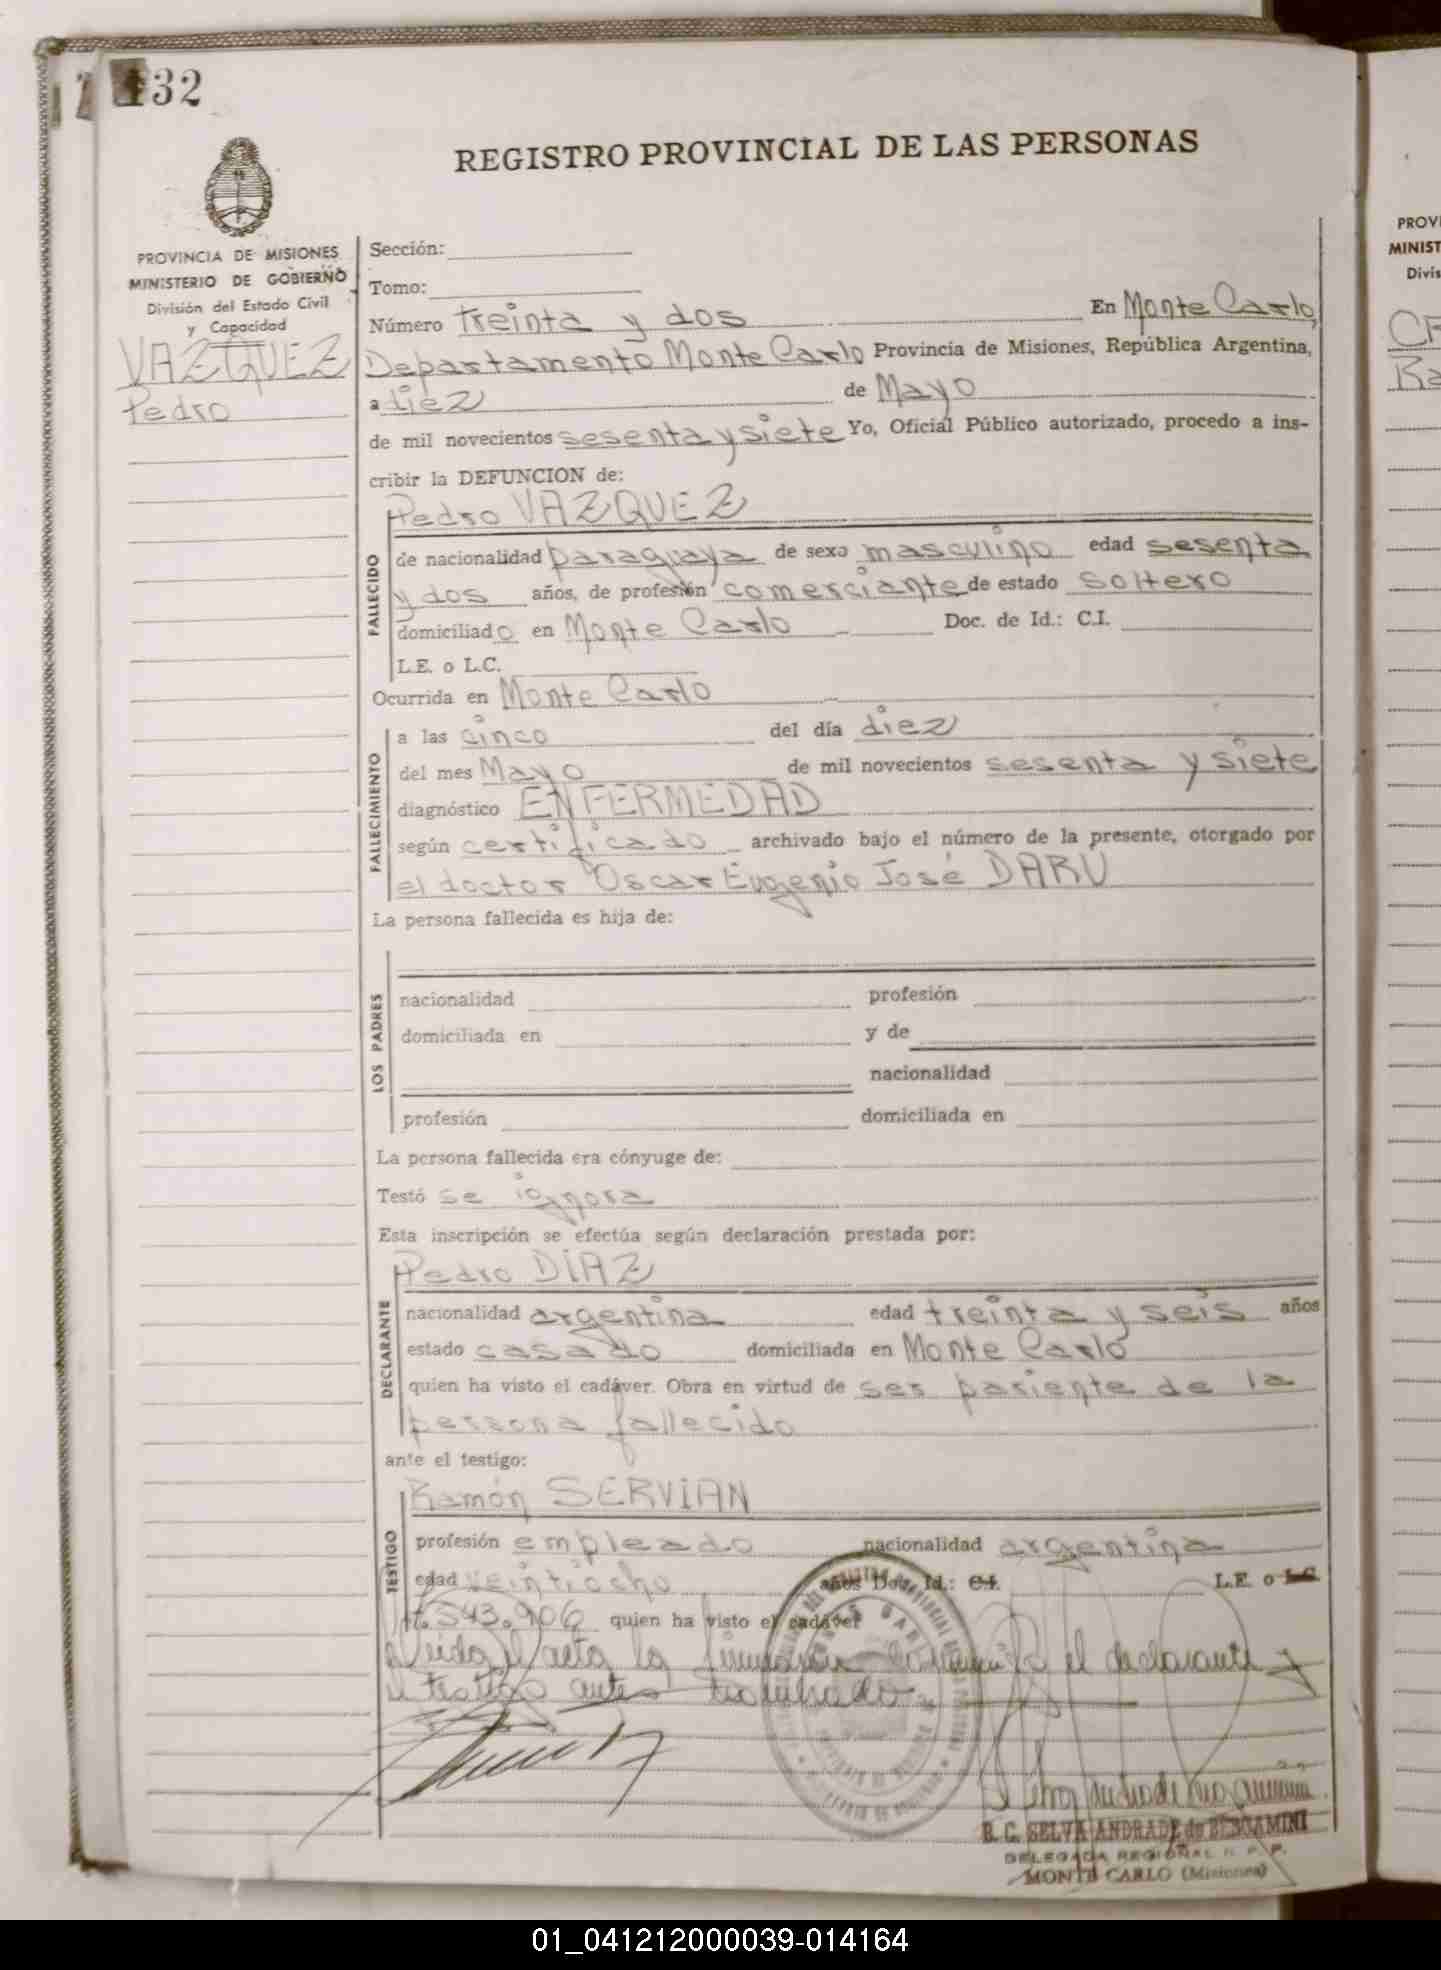 32
REGISTRO PROVINCIAL DE LAS PERSONAS
PROVINCIA DE MISIONES
MINISTERIO DE GOBIERNO
División del Estado Civil
y Capacidad
VAZQUEZ
Pedro
Sección:
Tomo:
Número treinta y dos En Monte Carlo,
Departamento Monte Carlo Provincia de Misiones, República Argentina,
a diez de Mayo
de mil novecientos sesenta y siete Yo, Oficial Público autorizado, procedo a ins-
cribir la DEFUNCION de:
Pedro VAZQUEZ
FALLECIDO
de nacionalidad paraguaya de sexo masculino edad sesenta
y dos años, de profesión comerciante de estado soltero
domiciliado en Monte Carlo Doc. de Id.: C.I.
L.E. o L.C.
Ocurrida en Monte Carlo
FALLECIMIENTO
a las cinco del día diez
del mes Mayo de mil novecientos sesenta y siete
diagnóstico ENFERMEDAD
según certificado archivado bajo el número de la presente, otorgado por
el doctor Oscar Eugenio José DARU
La persona fallecida es hija de:
LOS PADRES
nacionalidad profesión
domiciliada en y de
nacionalidad
profesión domiciliada en
La persona fallecida era cónyuge de:
Testó se ignora
Esta inscripción se efectúa según declaración prestada por:
Pedro DÍAZ
DECLARANTE
nacionalidad argentina edad treinta y seis años
estado casado domiciliada en Monte Carlo
quien ha visto el cadáver. Obra en virtud de ser pariente de la
persona fallecido
ante el testigo:
Ramón SERVIAN
TESTIGO
profesión empleado nacionalidad argentina
edad veintiocho años Doc. Id.: C.I. L.E. o L.C.
543.906 quien ha visto el cadáver
Leída el acta la firmaron conmigo el declarante y
el testigo antes nombrado.
B. C. SELVA ANDRADE de BERGAMINI
DELEGADA REGIONAL R. P. P.
MONTE CARLO (Misiones)
PROVI
MINIST
Divis
01_041212000039-014164